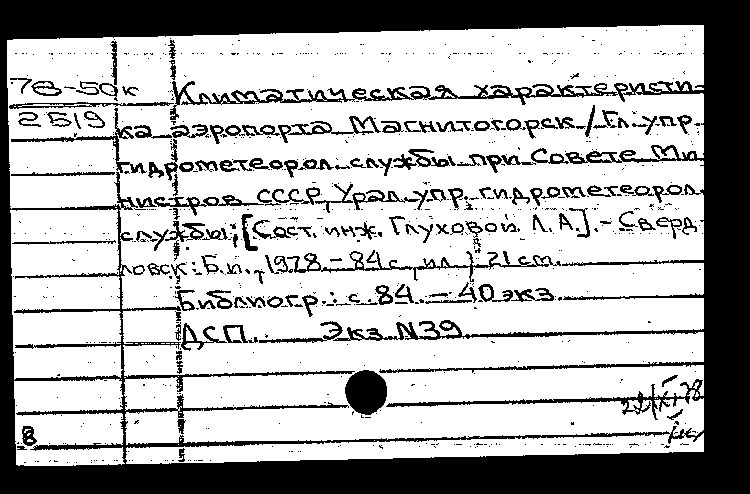 78-50к Климатическая характеристи-
2519 ка аэропорта Магнитогорск / Гл. упр.
гидрометеорол. службы при Совете Ми-
нистров СССР, Урал. упр. гидрометеорол.
службы; [Сост. инж. Глуховой Л. А.]. - Сверд-
ловск: Б.и., 1978. - 84 с., ил.; 21 см.
Библиогр.: с. 84. - 40 экз.
ДСП. Экз. N39
8